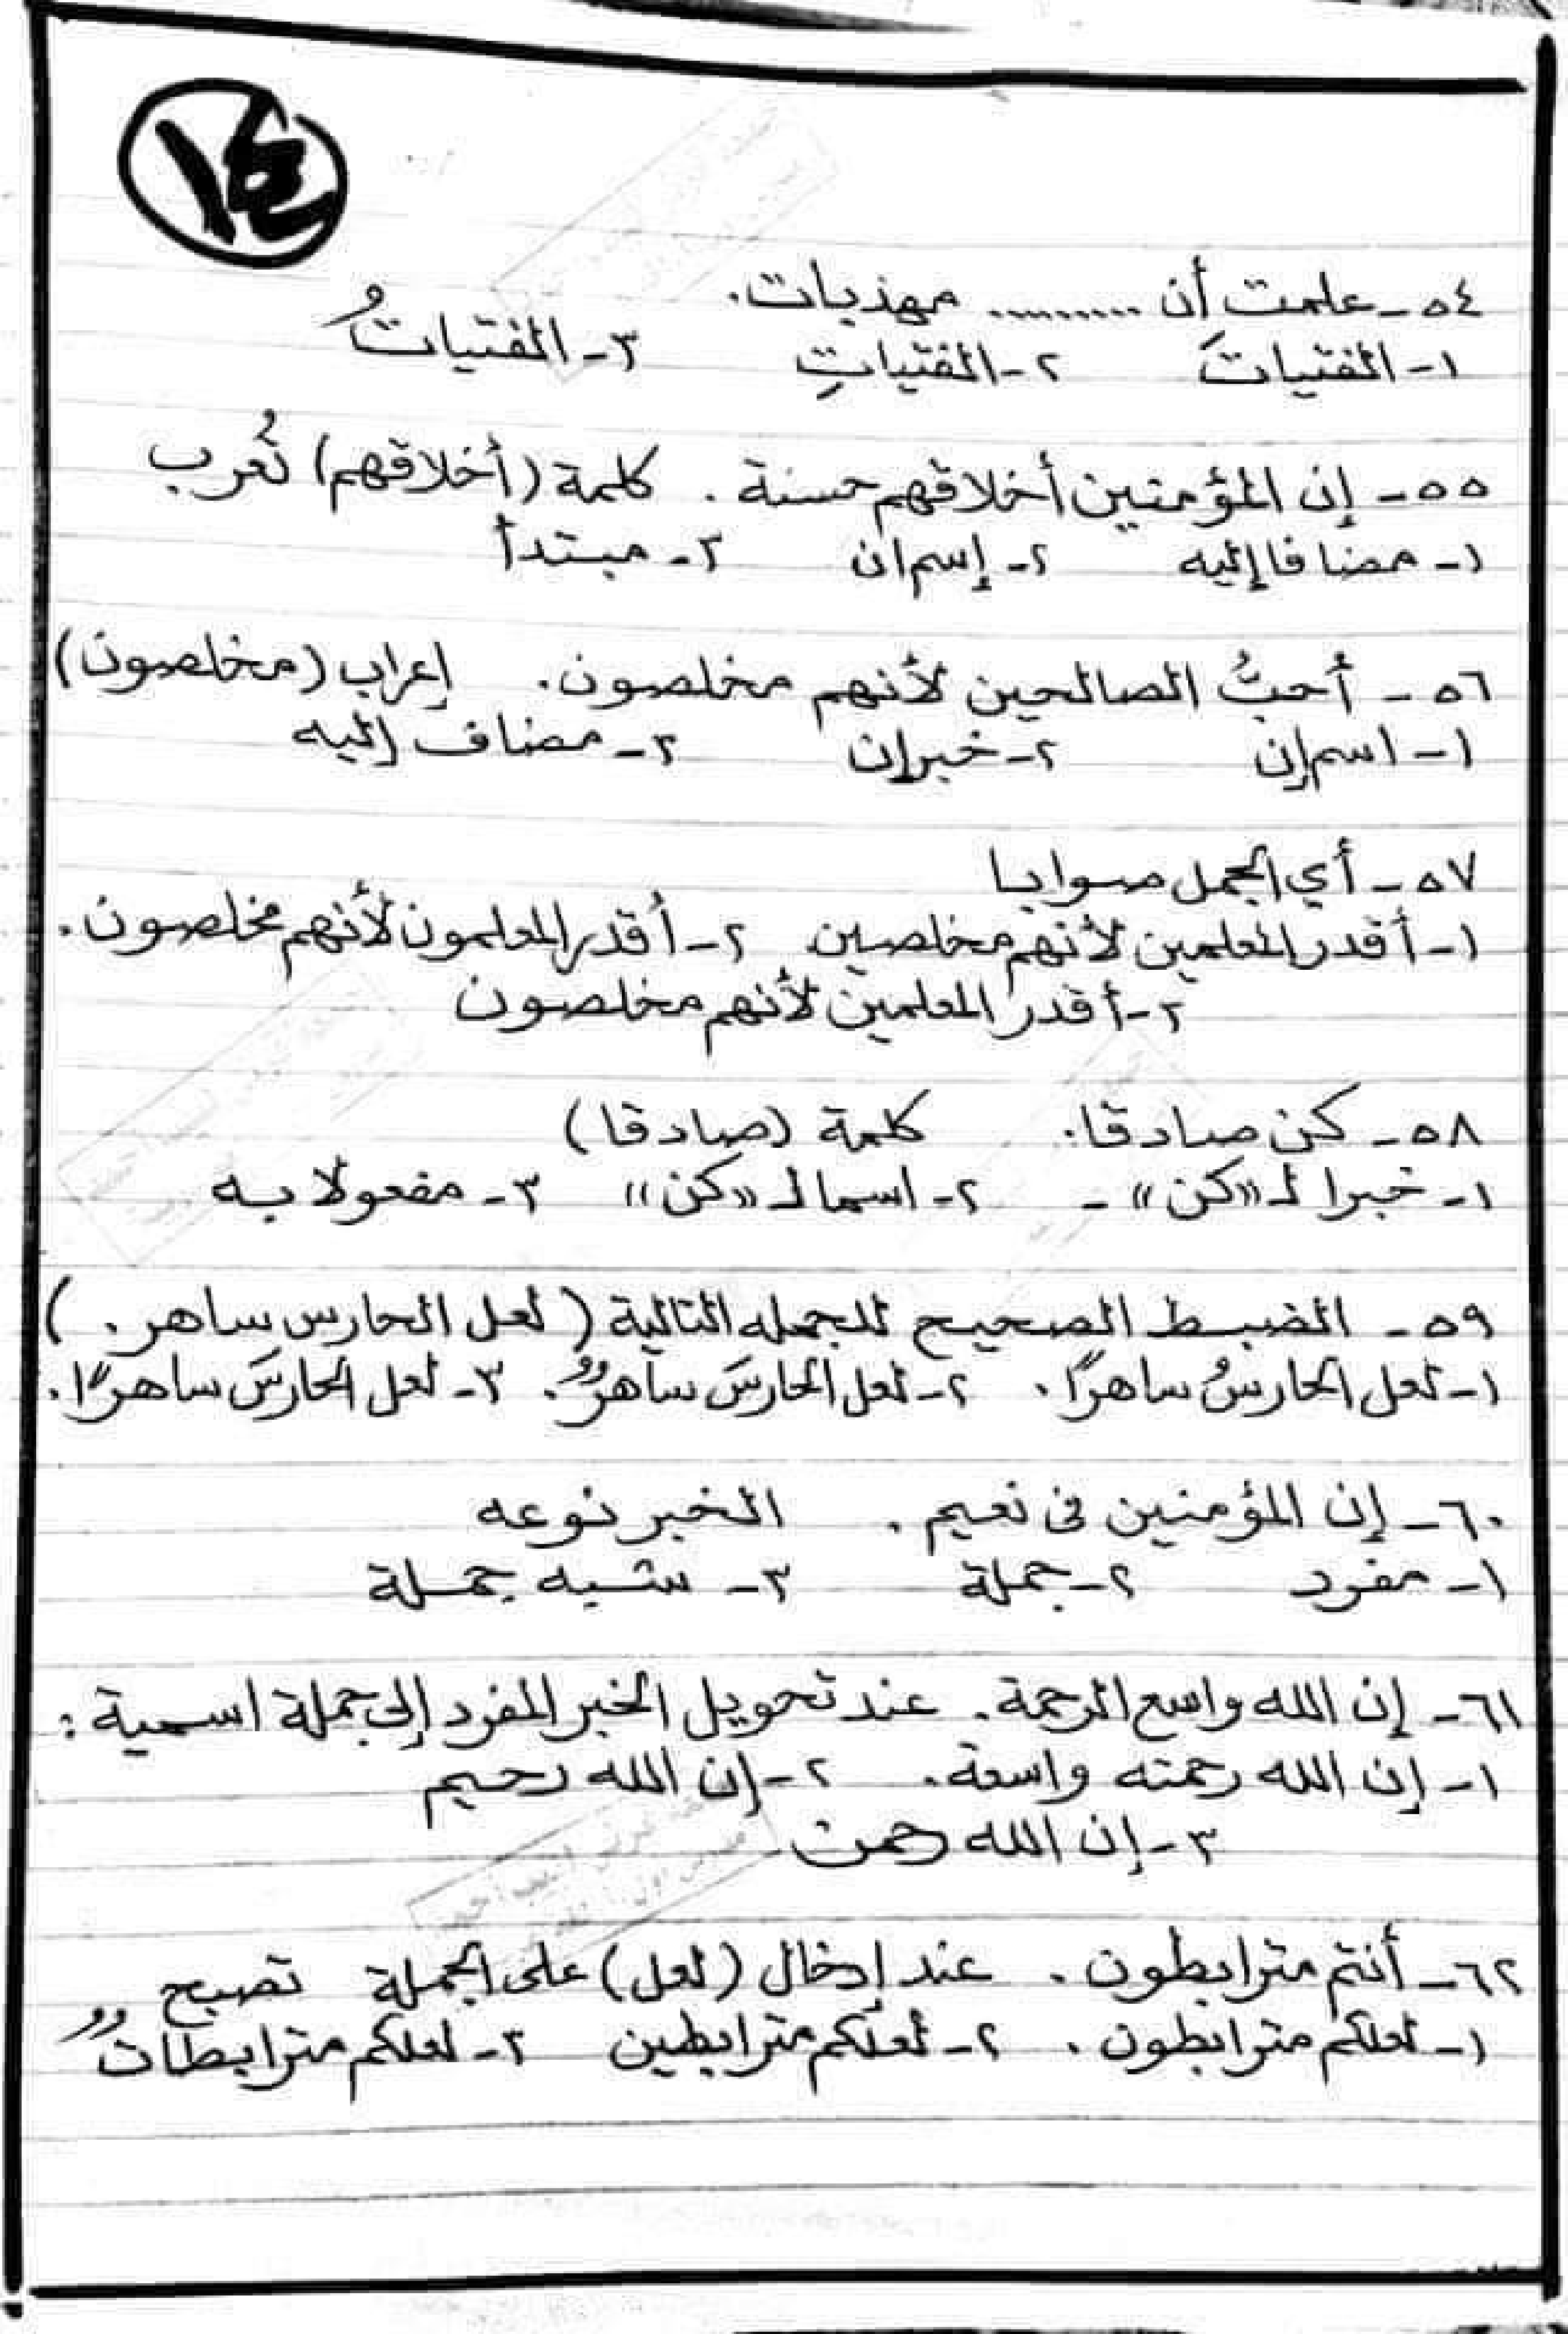 ١٤
٥٤ - علمت أن .......... مهذبات.
١- الفتياتَ ٢- الفتياتِ ٣- الفتياتُ
٥٥ - إن المؤمنين أخلاقهم حسنة . كلمة (أخلاقهم) تُعرب
١- مضافا إليه ٢- إسم ان ٣- مبتدأ
٥٦ - أحبُّ الصالحين لأنهم مخلصون . إعراب (مخلصون)
١- اسم إن ٢- خبر إن ٣- مضاف إليه
٥٧ - أي الجمل صوابا
١- أقدر المعلمين لأنهم مخلصين ٢- أقدر المعلمون لأنهم مخلصون .
٣- أقدر المعلمين لأنهم مخلصون
٥٨ - كن صادقا . كلمة (صادقا)
١- خبرا لـ «كن» - ٢- اسما لـ «كن» ٣- مفعولا به
٥٩ - الضبط الصحيح للجمله التالية ( لعل الحارس ساهر . )
١- لعل الحارسُ ساهرًا . ٢- لعل الحارسَ ساهرٌ . ٣- لعل الحارسَ ساهرًا .
٦٠ - إن المؤمنين فى نعيم . الخبر نوعه
١- مفرد ٢- جملة ٣- شبه جملة
٦١ - إن الله واسع الرحمة . عند تحويل الخبر المفرد إلى جملة اسمية :
١- إن الله رحمته واسعة . ٢- إن الله رحيم
٣- إن الله رحمن
٦٢ - أنتم مترابطون . عند إدخال (لعل) على الجملة تصبح
١- لعلكم مترابطون . ٢- لعلكم مترابطين ٣- لعلكم مترابطاتٌ